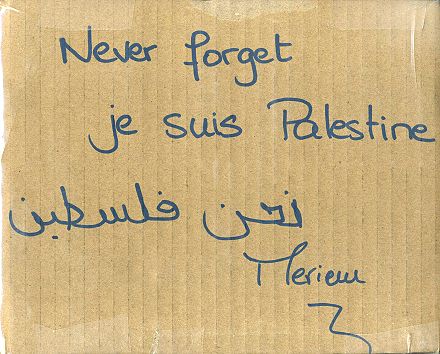 Never forget
je suis Palestine
نحن فلسطين
Meriem